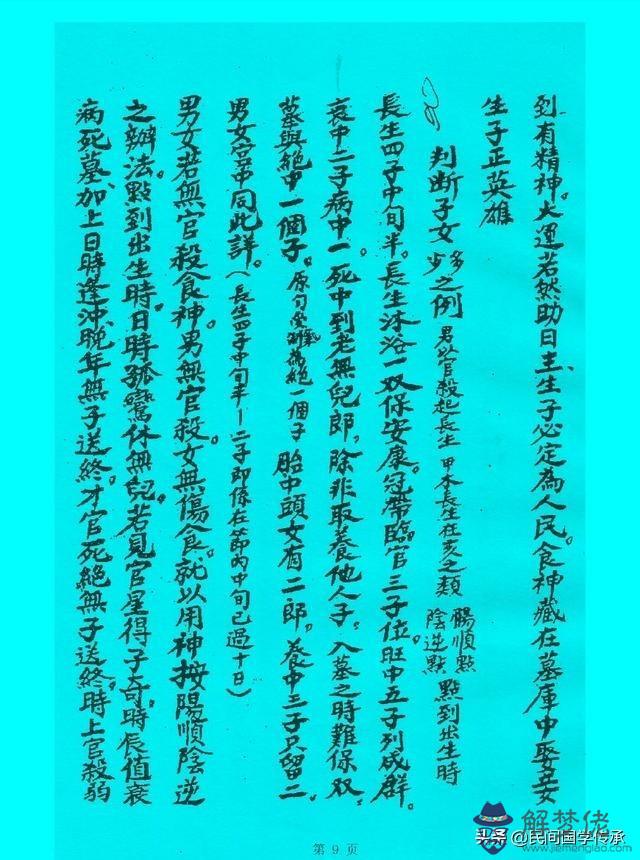 到有精神。大運若然助日主、生子必定為人民。食神藏在墓庫中娶妾
生子正英雄
判断子女多少之例 男以官殺起長生 甲木長生在亥之類 陽順點 陰逆點 點到出生時
長生四子中旬半。長生沐浴一双保安康。冠帶臨官三子位。旺中五子列成群。
衰中二子病中一。死中到老無兒郎，除非取養他人子，入墓之時難保双，
墓與絕中一個子。原句受難為絕一個子 胎中頭女有二郎，養中三子只留二。
男女宮中同此詳。（長生四子中旬半—二子即係在節內中旬已過十日）
男女若無官殺食神。男無官殺。女無傷食。就以用神按陽順陰逆
之辦法。點到出生時。日時孤鸞休無兒。若見官星得子奇。時辰值衰
病死墓、加上日時逢沖、晚年無子送終。才官死絕無子送終。時上官殺弱
第 9 页
头条 @民间国学传承
解梦佬
www.jiemenglao.com